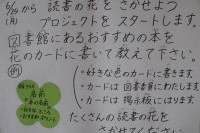 6/14から 読書の花を さかせよう
プロジェクトを スタートします。
図書館にあるおすすめの本を
花のカードに書いて教えて下さい。
(例)
・好きな色のカードに書きます。
・カードは 図書委員にわたします。
・カードは 掲示板にはります。
名前
本の名前
おすすめポイント
たくさんの 読書の花を
さかせてください